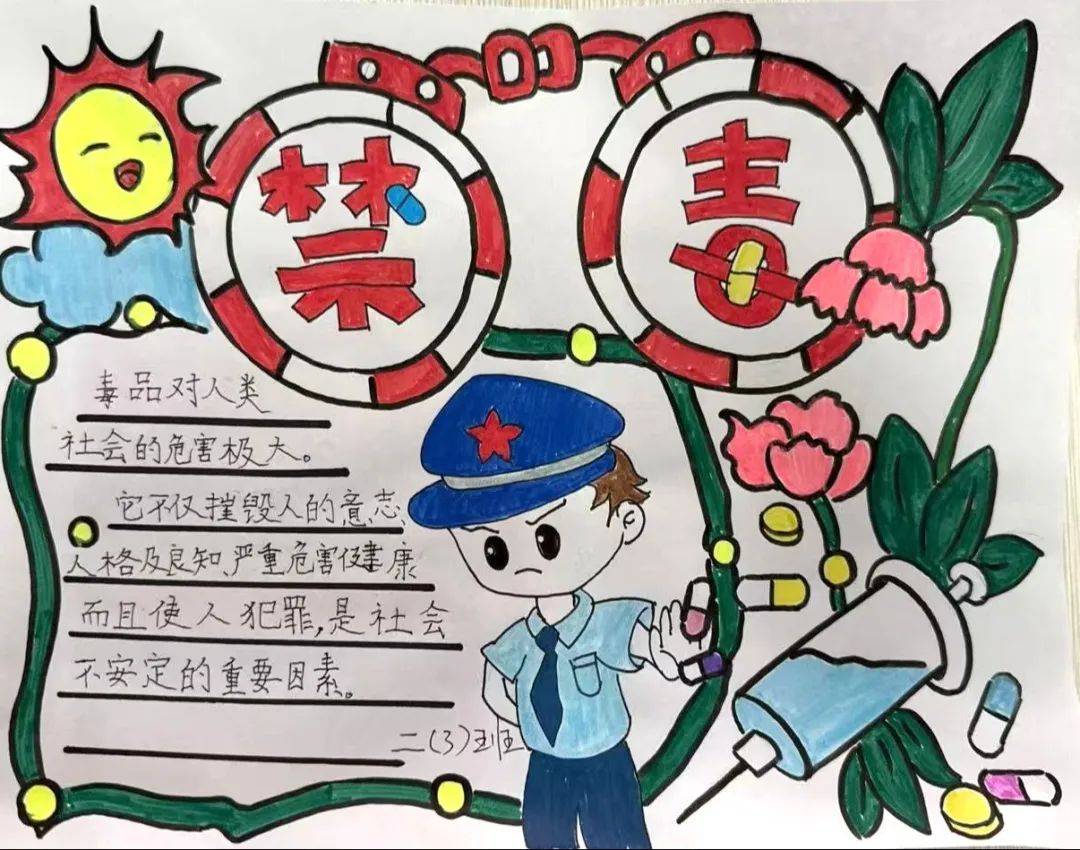 禁毒
毒品对人类
社会的危害极大。
它不仅摧毁人的意志、
人格及良知、严重危害健康
而且使人犯罪,是社会
不安定的重要因素。
二(3)班